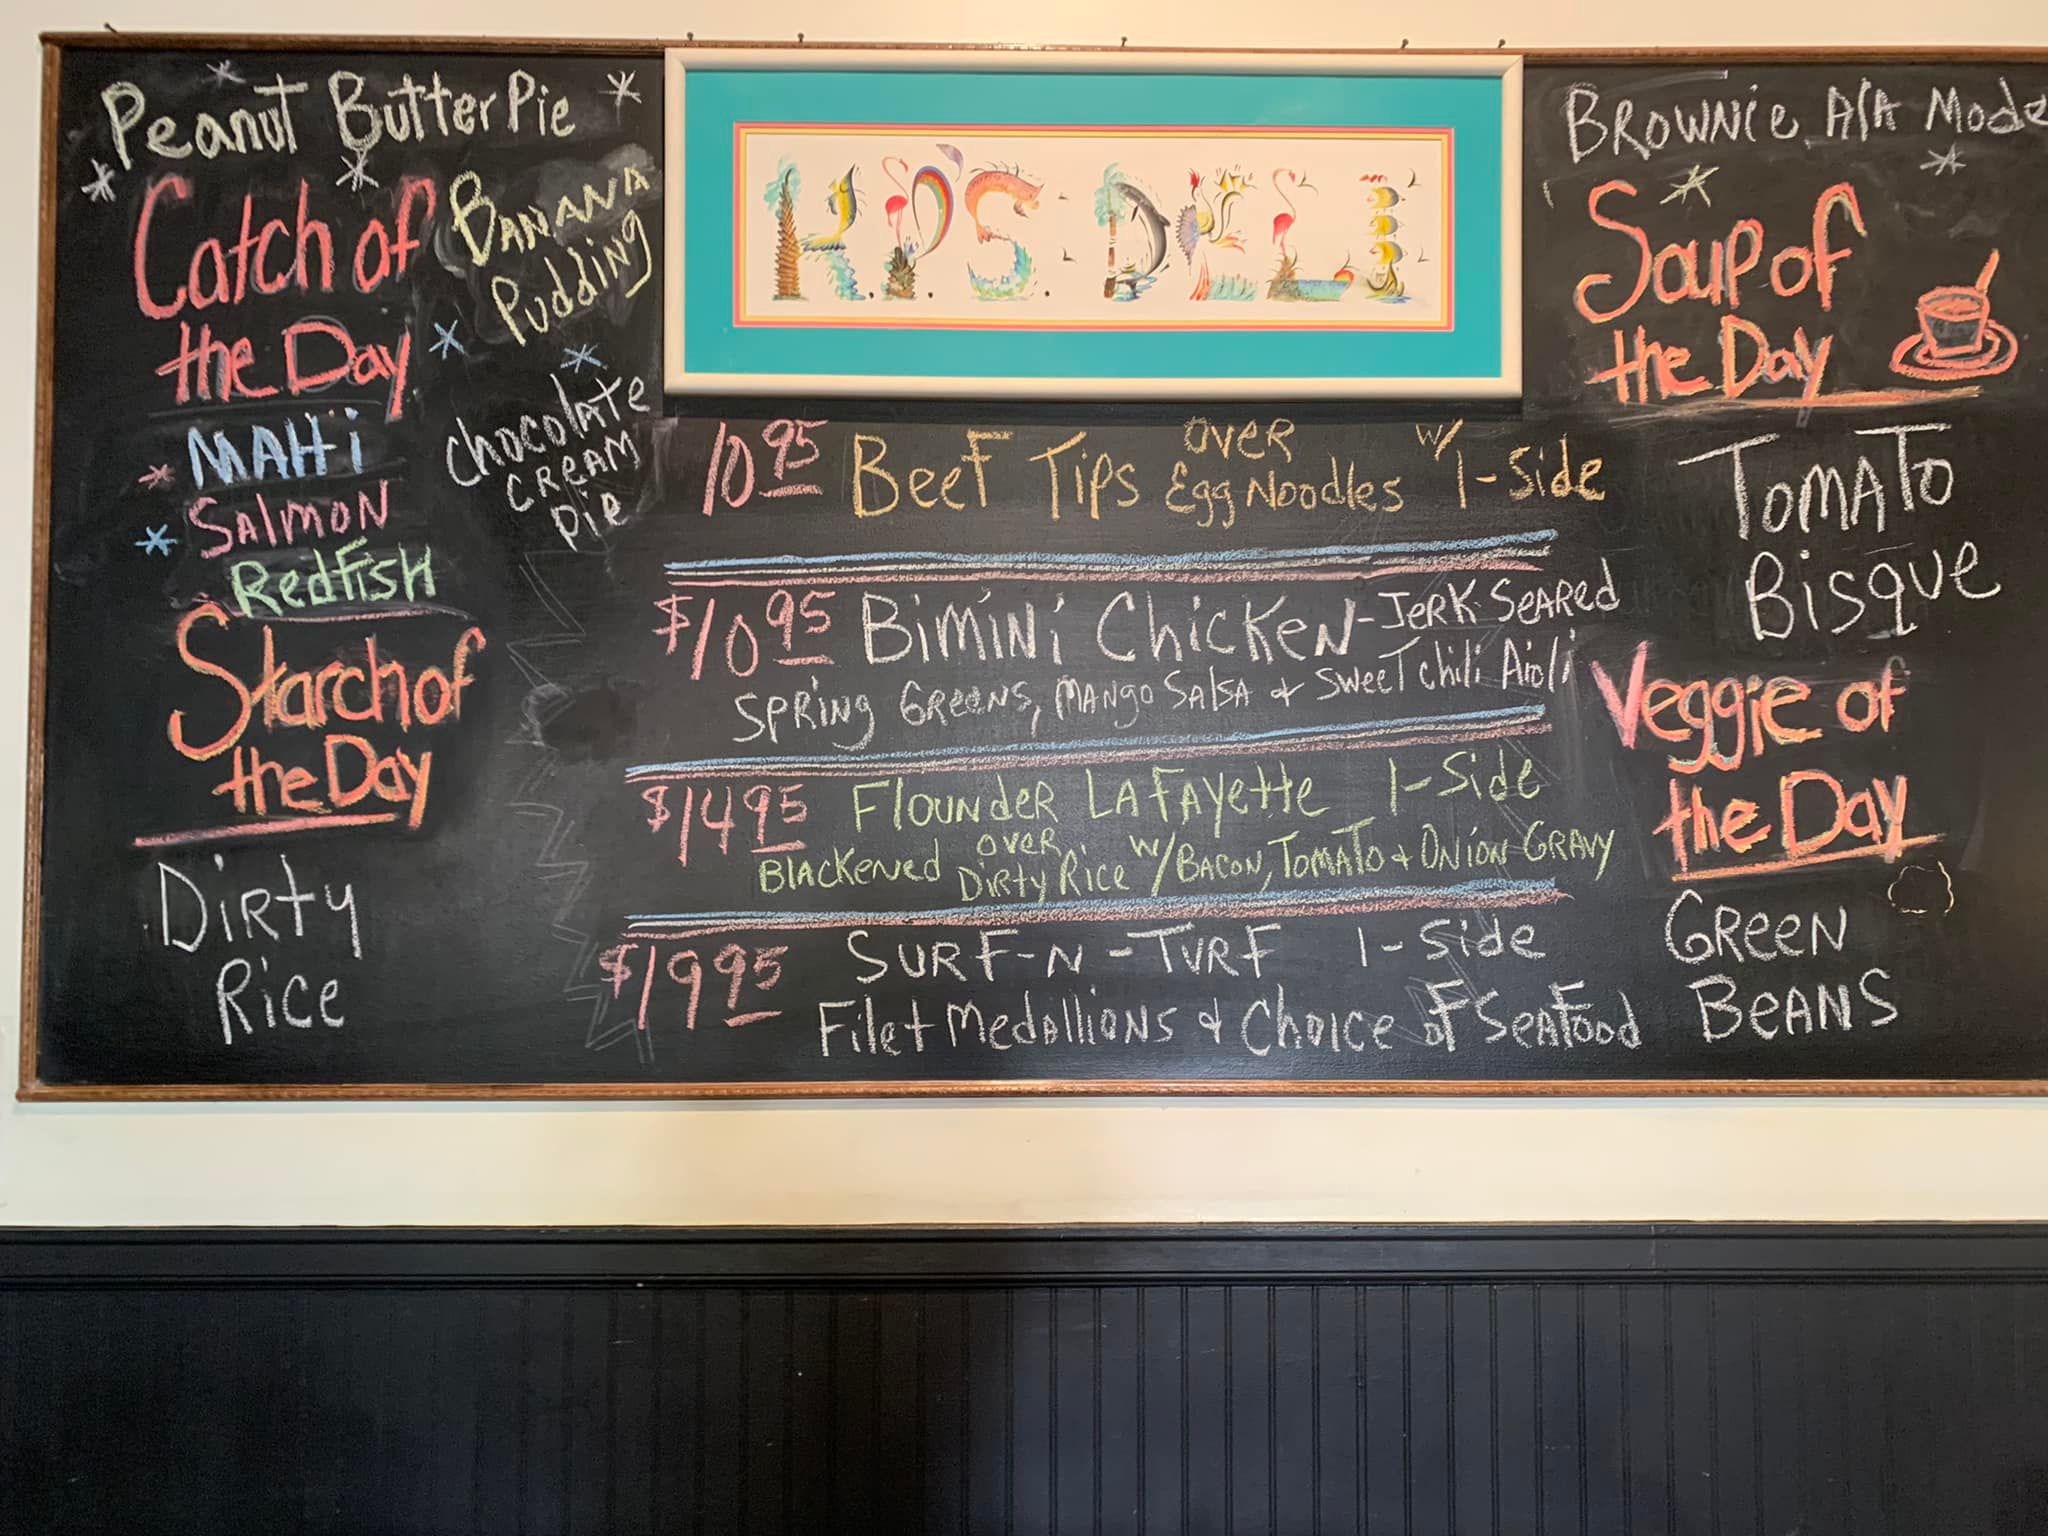 Peanut Butter Pie
Catch of
the Day
MAHi
SALMON
RedFisH
Starch of
the Day
Dirty
Rice
BANANA
Pudding
Chocolate
CREAM
Pie
K.P.'S. DELI
10.95 Beef Tips over Egg Noodles w/ 1-Side
$10.95 Bimini Chicken - Jerk Seared
Spring Greens, Mango Salsa & Sweet Chili Aioli
$14.95 Flounder LaFayette 1-Side
Blackened over Dirty Rice w/ Bacon, Tomato & Onion Gravy
$19.95 SURF-N-TURF 1-Side
Filet Medallions & Choice of Seafood
Brownie AlA Mode
Soup of
the Day
TOMATO
Bisque
Veggie of
the Day
GREEN
BEANS